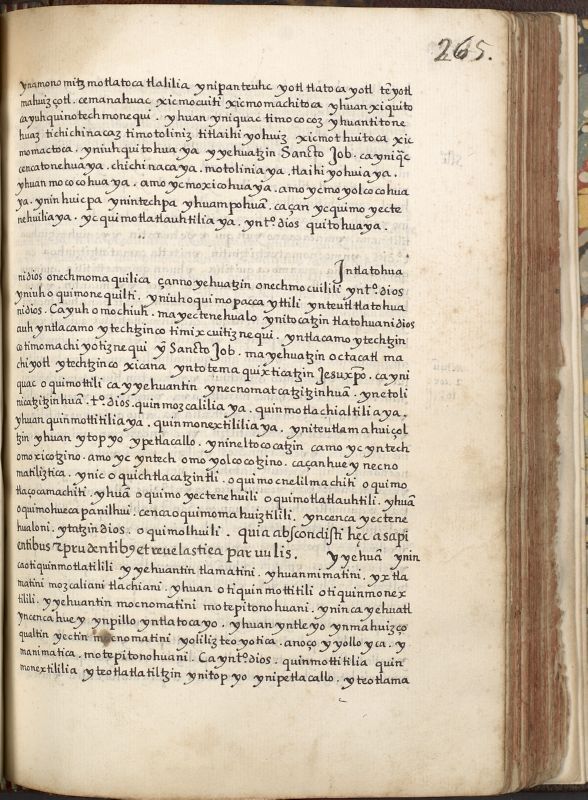 265.
ynamono mitz motlatoca tlalilia yn ipan teuhc yotl tlatoca yotl tēyotl
mahuiz çotl. cemanahuac xicmocuiti xicmomachitoca yhuan xiquito
ca yuh quinotech monequi. yhuan yniquac timococoz yhuan titone
huaz tichichinacaz timotoliniz titlaihiyohuiz xicmothuitoca xic
momactoca. yniuh quitohuaya yyehuatzin Sancto Job. cayniq̄c
cenca tonehuaya. chichinacaya. motoliniaya. tlaihiyohuiaya.
yhuan mococohuaya. amo ycmoxicohuaya. amo ycmoyolcocohua
ya. ynin huicpa ynintechpa yhuampohuā. caçan yc quimoyecte
nehuiliaya. yc quimotlatlauhtiliaya. yn tº. dios quitohuaya.
Jntlatohua
nidios onechmomaquilica çanno yehuatzin onechmocuilili yn tº. dios
yniuh oquimonequilti. yniuh oquimopaccayttili ynteutltlatohua
nidios. Cayuh omochiuh. ma yectenehualo ynitocatzin tlatohuanidios
auh yntlacamo ytechtzinco timixcuitiznequi. yntlacamo ytechtzin
cotimomachiyotiznequi ȳ Sancto Job. ma yehuatzin octacatl ma
chiyotl ytechtzinco xicana yntotemaquixticatzin Jesuxp̄o. cayni
quac oquimottili ca yyehuantin ynecnomatcatzitzinhuā. ynetoli
nicatzitzinhuā. tº. dios. quinmozcaliliaya. quinmotlachialtiliaya.
yhuan quinmottitiliaya. quinmonextiliaya. yniteutlamahuiçol
tzin yhuan ytopyo ypetlacallo. ynineltococatzin camo yc yntech
omoxicotzino. amo yc yntech omoyolcocotzino. caçan huey necno
matiliztica. ynic oquichtlacatzintli. oquimocnelilmachiti oquimo
tlaçocamachiti. yhuā oquimoyectenehuili oquimotlatlauhtili. yhuā
oquimohuecapanilhui. cenca oquimomahuiztilili. yncenca yectene
hualoni. ytatzin dios. oquimolhuili. quia abscondisti hęc a sapi
entibus ⁊ prudentib9 et reuelasti ea paruulis. Yyehuā ynin
caotiquinmotlatilili yyehuantin tlamatini. yhuan mimatini. yxtla
matini mozcaliani tlachiani. yhuan otiquinmottitili otiquinmonex
tilili. yyehuantin mocnomatini motepitonohuani. ynin ca yehuatl
yncenca huey ynpillo yntlatocayo. yhuan yntleyo ynmahuizço
qualtin yectin mocnomatini yoliliz teoyotica. anoço yyolloyca. y
manimatica. motepitonohuani. Cayntº. dios. quinmottitilia quin
monextililia yteotlatlatiltzin ynitopyo ynipetlacallo. yteotlama